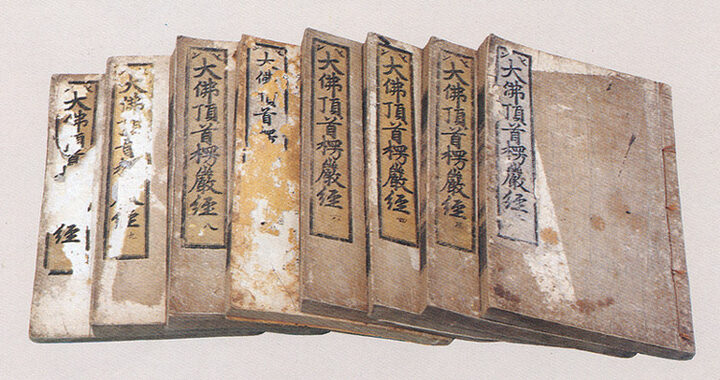 大佛頂首經
大佛頂首楞經
大佛頂首楞嚴經八
大佛頂首
大佛頂首楞嚴經
大佛頂首楞嚴經
大佛頂首楞嚴經
大佛頂首楞嚴經